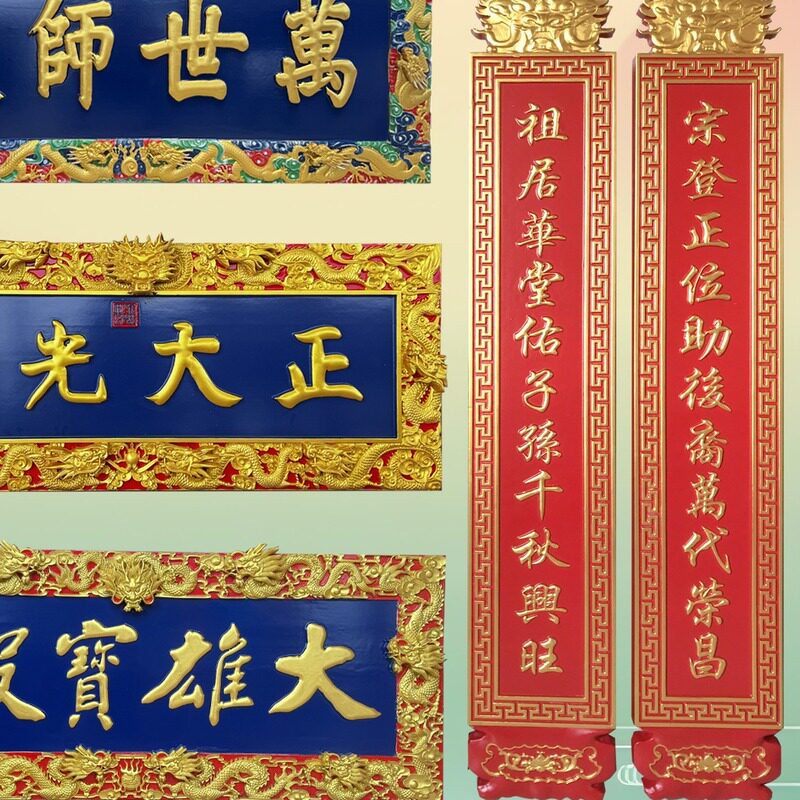 萬世師
正大光
大雄寶
宗登正位助後裔萬代榮昌
祖居華堂佑子孫千秋興旺